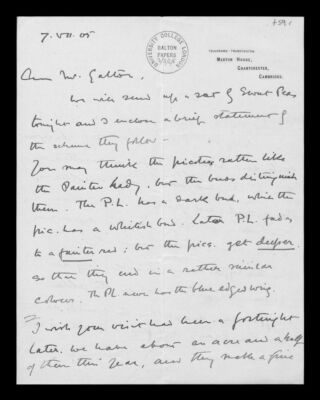 7. VII. 05
+ 59 r
UNIVERSITY COLLEGE LONDON
GALTON
PAPERS
TELEGRAMS: TRUMPINGTON.
MERTON HOUSE,
GRANTCHESTER,
CAMBRIDGE.
Dear Mr. Galton,
We will send up a set of Sweet Peas
tonight and I enclose a brief statement of
the scheme they follow –
You may think the picotees rather like
the Painted Lady, but the buds distinguish
them. The P.L. has a dark bud, while the
pic. has a whitish bud. Later P.L. fades
to a fainter red; but the pics. get deeper
so that they end in a rather similar
colour. The P.L. never has the blue edged wing.
I wish your visit had been a fortnight
later. We have about an acre and a half
of them this year, and they make a fine